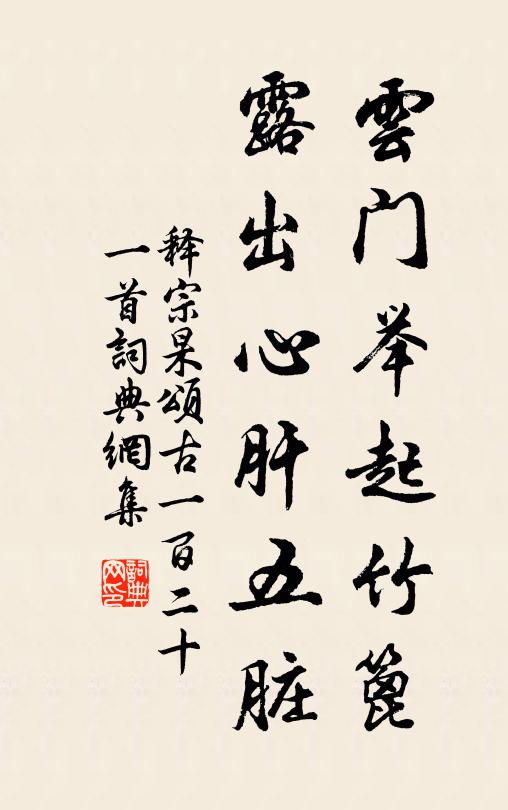 雲门举起竹篦
露出心肝五脏
释宗杲頌古一百二十
一首詞典網集
詞典
网印